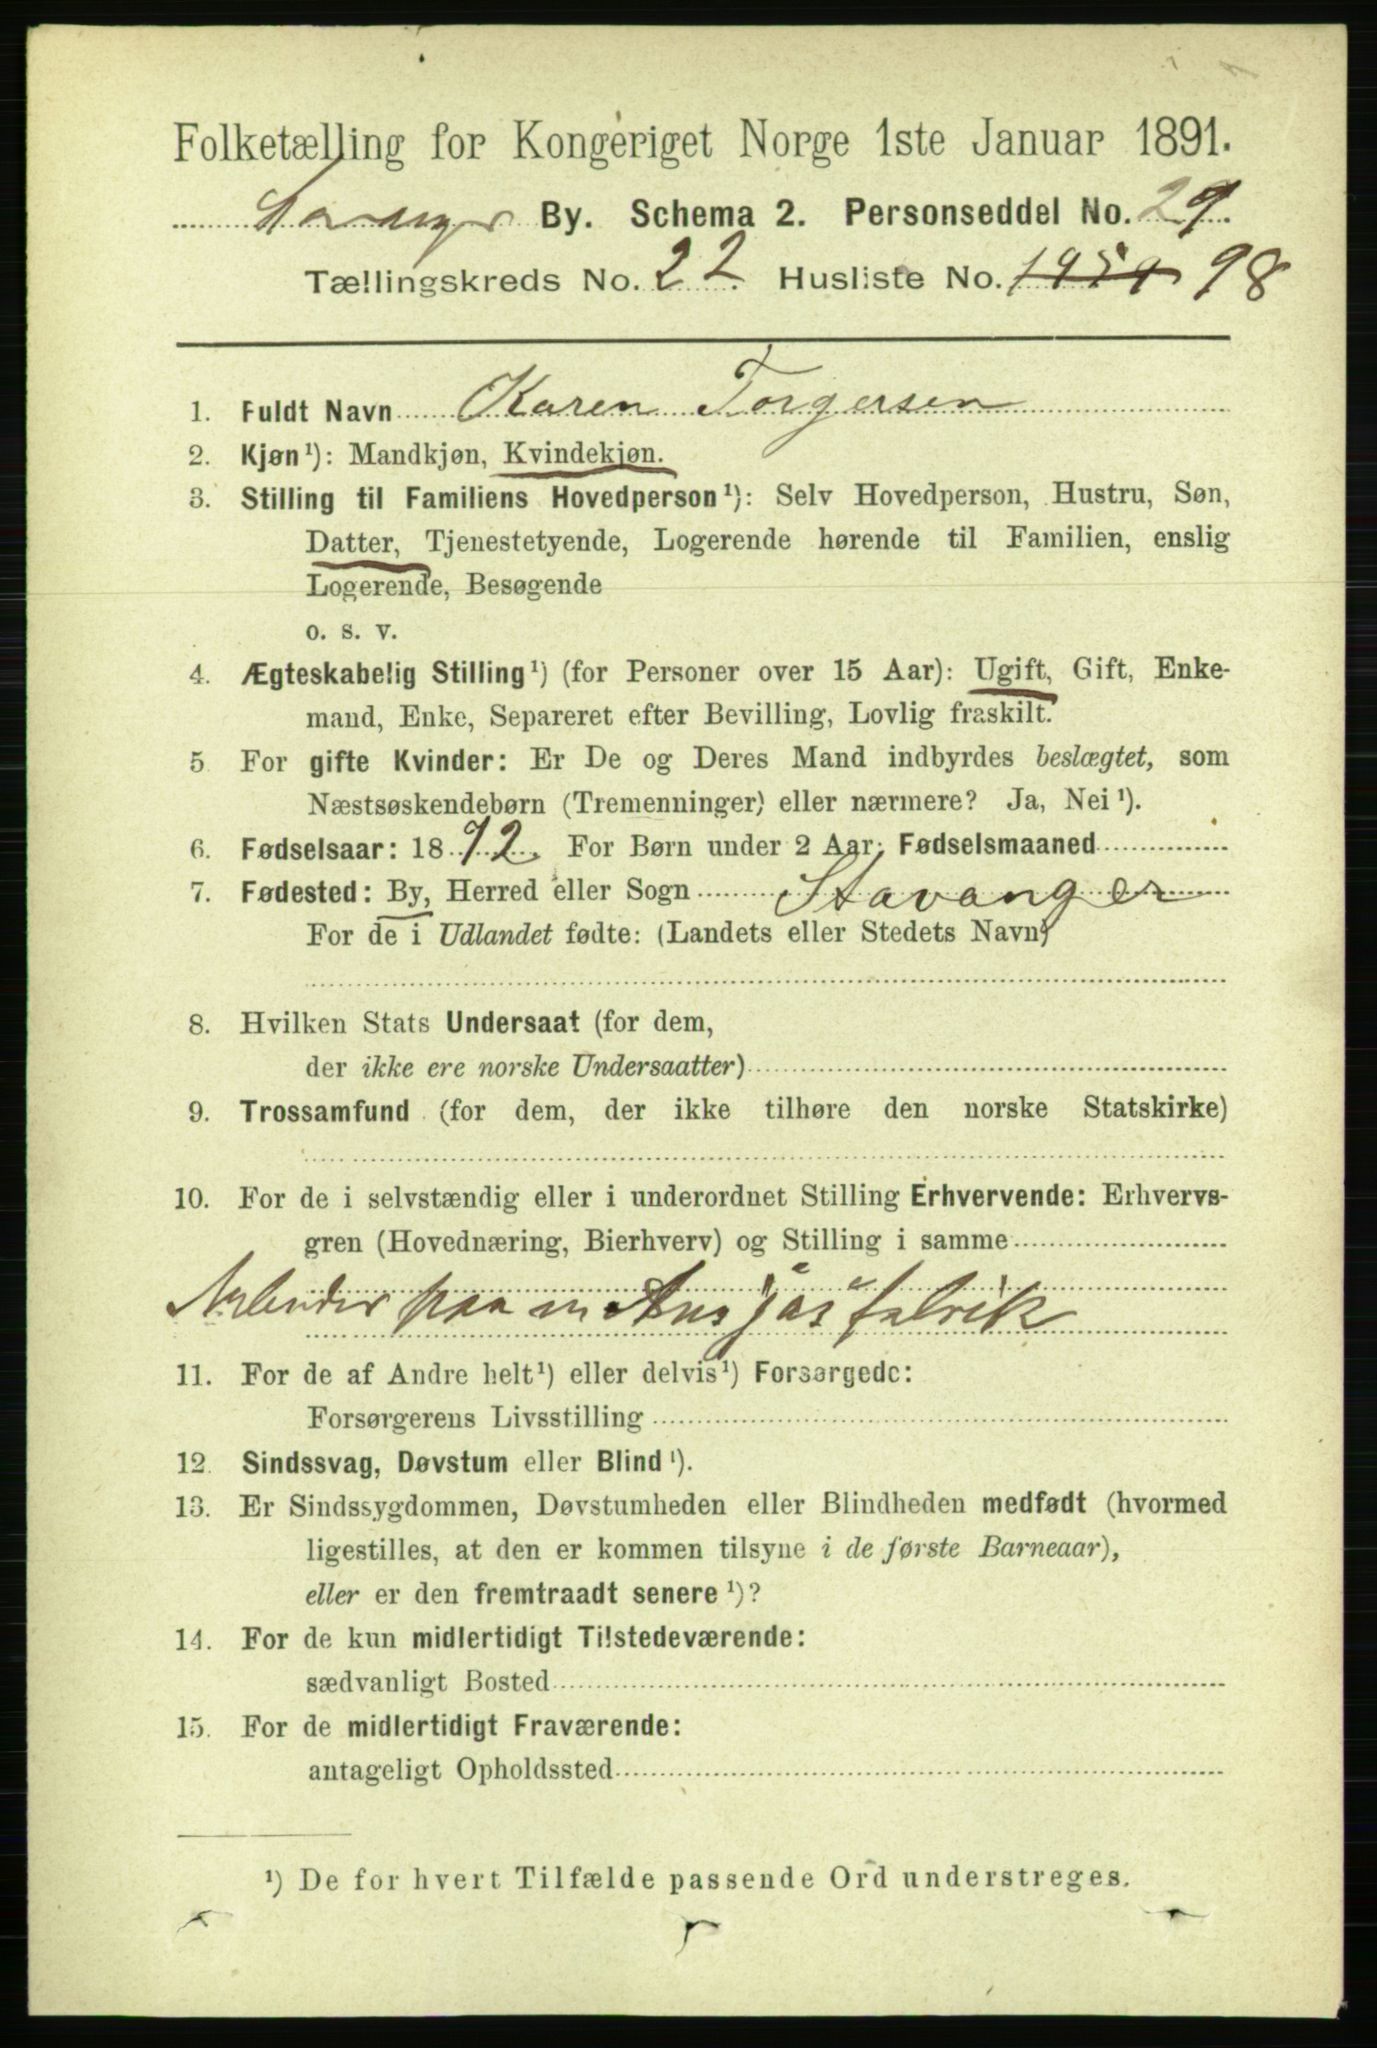 Folketælling for Kongeriget Norge 1ste Januar 1891.
Stavanger By. Schema 2. Personseddel No. 29.
Tællingskreds No. 22. Husliste No. 98
1. Fuldt Navn Karen Torgersen
2. Kjøn¹): Mandkjøn, Kvindekjøn.
3. Stilling til Familiens Hovedperson¹): Selv Hovedperson, Hustru, Søn,
Datter, Tjenestetyende, Logerende hørende til Familien, enslig
Logerende, Besøgende
o. s. v.
4. Ægteskabelig Stilling¹) (for Personer over 15 Aar): Ugift, Gift, Enke-
mand, Enke, Separeret efter Bevilling, Lovlig fraskilt.
5 For gifte Kvinder: Er De og Deres Mand indbyrdes beslægtet, som
Næstsøskendebørn (Tremenninger) eller nærmere? Ja, Nei¹).
6. Fødselsaar: 1872. For Børn under 2 Aar: Fødselsmaaned
7. Fødested: By, Herred eller Sogn Stavanger
For de i Udlandet fødte: (Landets eller Stedets Navn)
8. Hvilken Stats Undersaat (for dem,
der ikke ere norske Undersaatter)
9. Trossamfund (for dem, der ikke tilhøre den norske Statskirke)
10. For de i selvstændig eller i underordnet Stilling Erhvervende: Erhvervs-
gren (Hovednæring, Bierhverv) og Stilling i samme
Arbeider paa en Ansjosfabrik
11. For de af Andre helt¹) eller delvis¹) Forsørgede:
Forsørgerens Livsstilling
12. Sindssvag, Døvstum eller Blind¹).
13. Er Sindssygdommen, Døvstumheden eller Blindheden medfødt (hvormed
ligestilles, at den er kommen tilsyne i de første Barneaar),
eller er den fremtraadt senere¹)?
14. For de kun midlertidigt Tilstedeværende:
sædvanligt Bosted
15. For de midlertidigt Fraværende:
antageligt Opholdssted
¹) De for hvert Tilfælde passende Ord understreges.